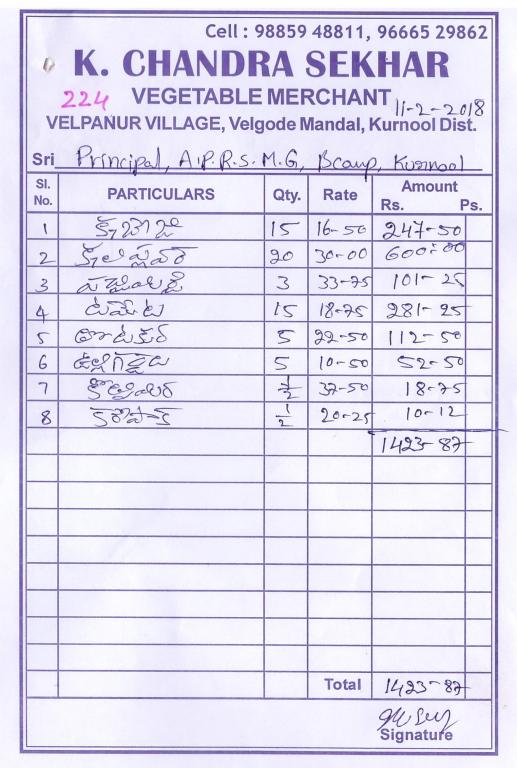 Cell : 98859 48811, 96665 29862
K. CHANDRA SEKHAR
224 VEGETABLE MERCHANT 11-2-2018
VELPANUR VILLAGE, Velgode Mandal, Kurnool Dist.
Sri Principal, A.P.R.S.M.G, Bcamp, Kurnool
Sl. No. PARTICULARS Qty. Rate Amount Rs. Ps.
1 15 16-50 247-50
2 20 30-00 600-00
3 3 33-75 101-25
4 టమోట 15 18-75 281-25
5 తోటకూర 5 22-50 112-50
6 ఉల్లిగడ్డలు 5 10-50 52-50
7 1/2 37-50 18-75
8 1/2 20-25 10-12
1423-87
Total 1423-87
Signature